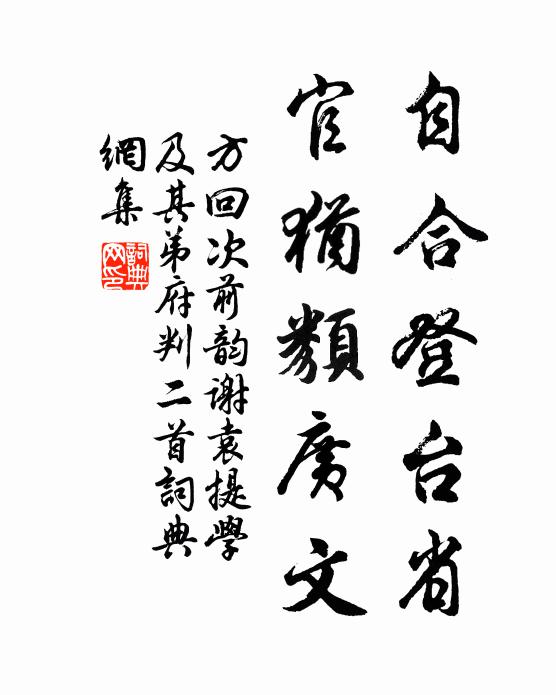 自合登台省
官猶類廣文
方回次前韵謝袁提學
及其弟府判二首詞典
網集
詞典網印